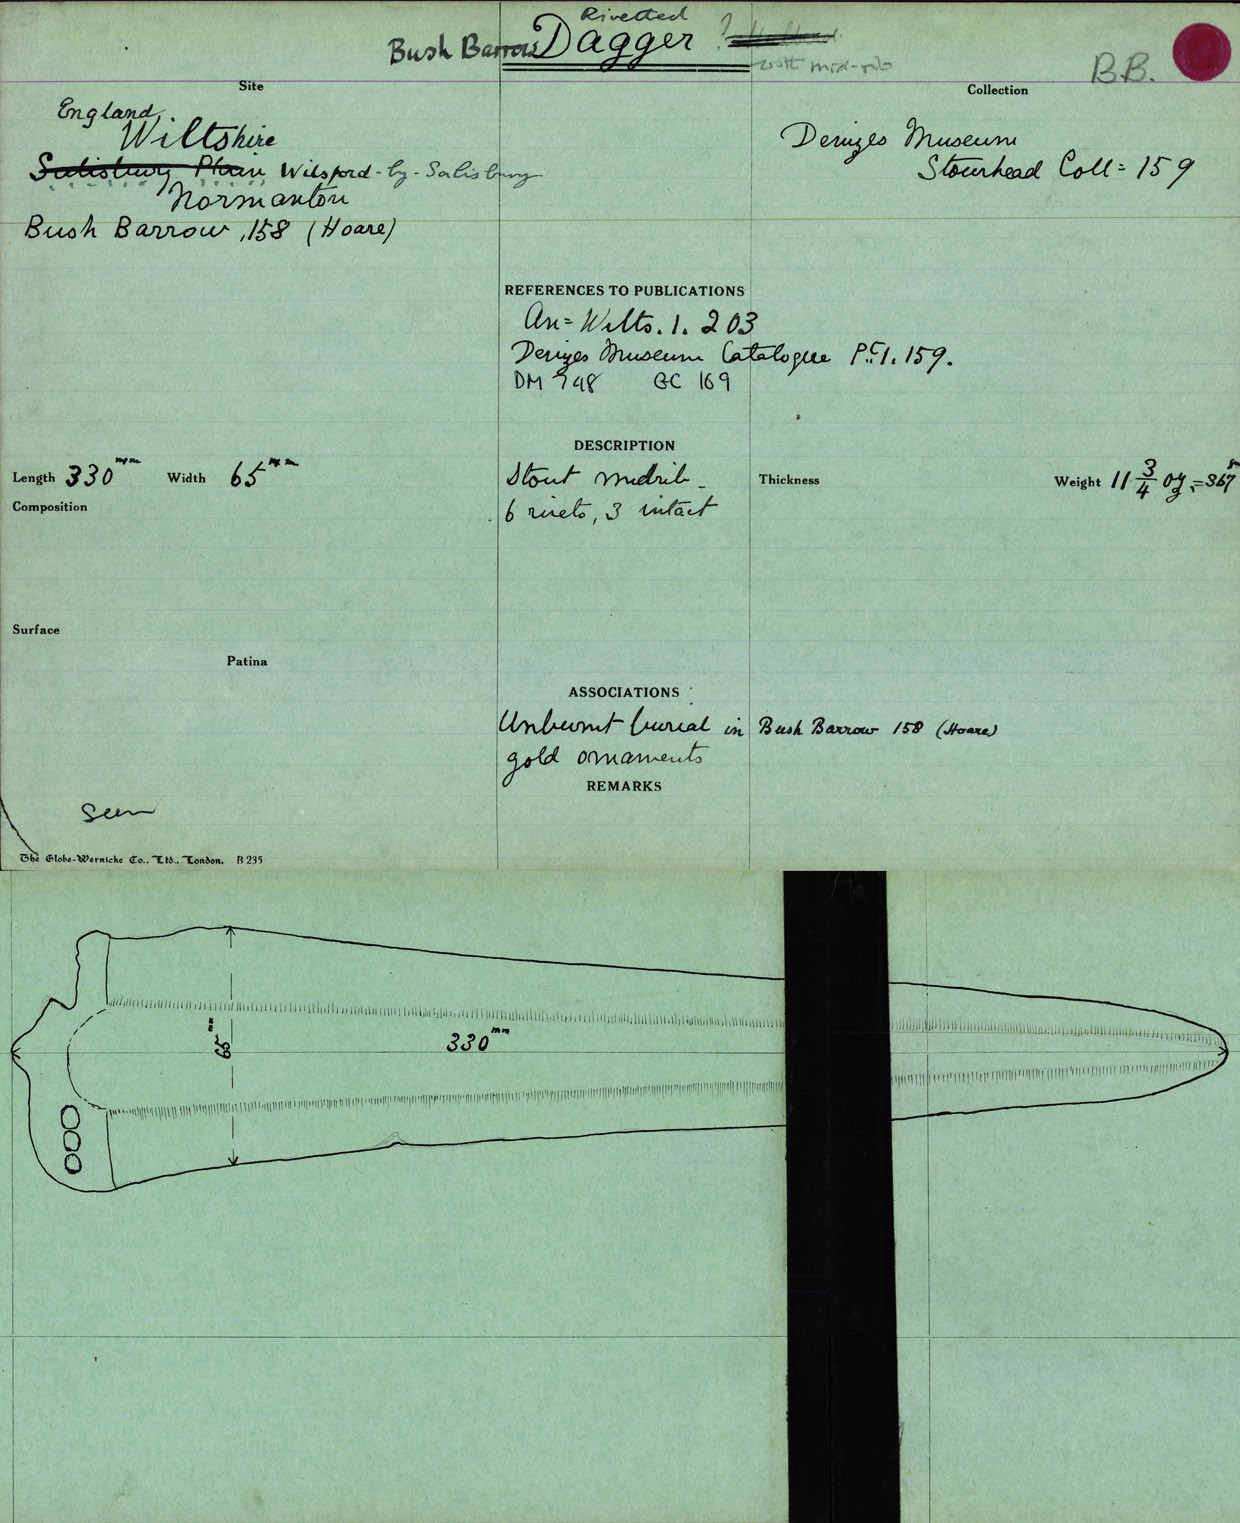 Rivetted
Bush Barrow Dagger ?
with mid-rib
B.B.
Site
Collection
England
Wiltshire
Salisbury Plain Wilsford-by-Salisbury
Normanton
Bush Barrow, 158 (Hoare)
Devizes Museum
Stourhead Coll= 159
REFERENCES TO PUBLICATIONS
An= Wilts. 1. 203
Devizes Museum Catalogue Pt 1. 159.
DM 748 GC 169
DESCRIPTION
Length 330mm Width 65mm
Stout midrib
6 rivets, 3 intact
Thickness
Weight 11 3/4 oz. = 367
Composition
Surface
Patina
ASSOCIATIONS
Unburnt burial in Bush Barrow 158 (Hoare)
gold ornaments
REMARKS
Seen
The Globe-Wernicke Co., Ltd., London. B 235
65mm
330mm